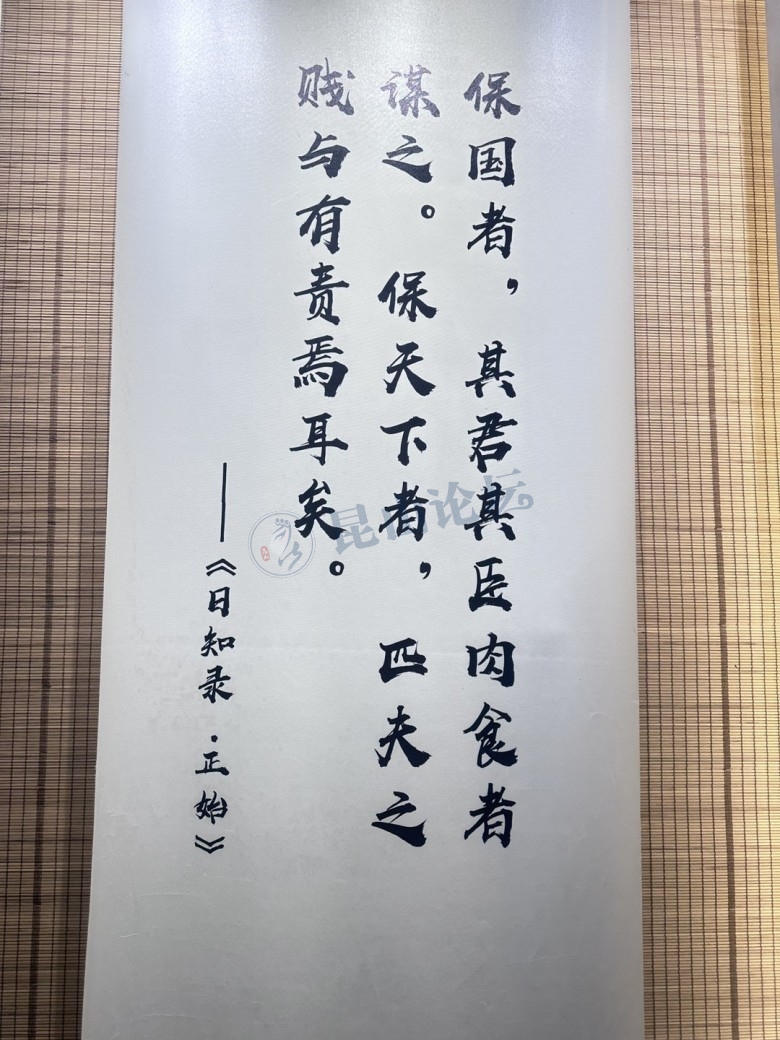 保国者，其君其臣肉食者
谋之。保天下者，匹夫之
贱与有责焉耳矣。
——《日知录·正始》
昆山论坛